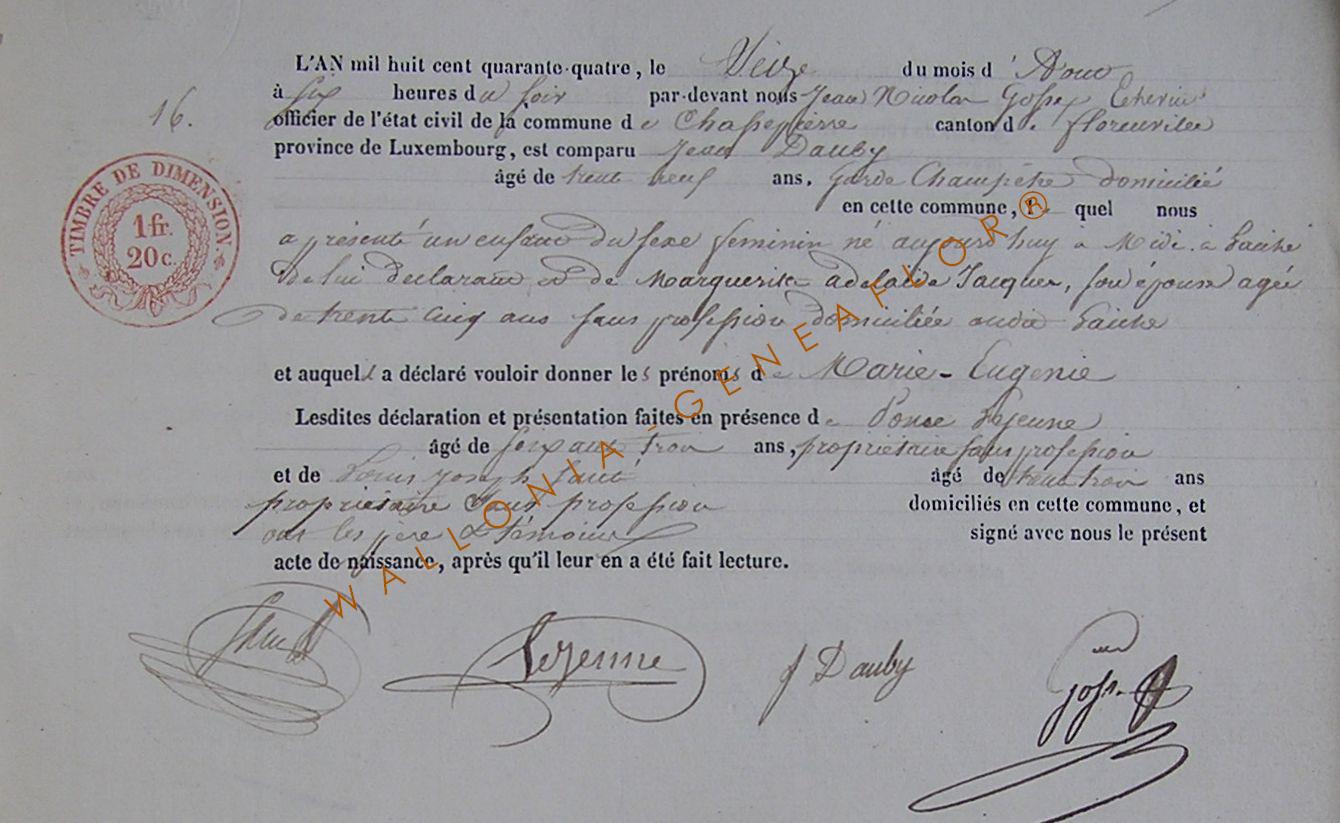 L'AN mil huit cent quarante-quatre, le Seize du mois d'Aout
à Six heures du Soir par-devant nous Jean Nicolas Gosse Echevin
16.
officier de l'état civil de la commune de Chassepierre canton de florenville
province de Luxembourg, est comparu Jean Dauby
âgé de trente neuf ans, garde Champêtre domicilié
en cette commune, le quel nous
a présenté un enfant du sexe feminin né aujourd'huy a Midi à Laiche
De lui declarant et de Marguerite adelaide Jacques, son épouse agée
de trente cinq ans sans profession domiciliée audit Laiche
et auquel a déclaré vouloir donner les prénoms de Marie-Eugenie
Lesdites déclaration et présentation faites en présence de Ponce Lejeune
âgé de soixante trois ans, propriétaire sans profession
et de Louis Joseph âgé de trente trois ans
propriétaire sans profession domiciliés en cette commune, et
ont les père & témoins signé avec nous le présent
acte de naissance, après qu'il leur en a été fait lecture.
TIMBRE DE DIMENSION
1 fr.
20 c.
Lejeune
J Dauby
Gosse
WALLONIA-GENEAFLOR®